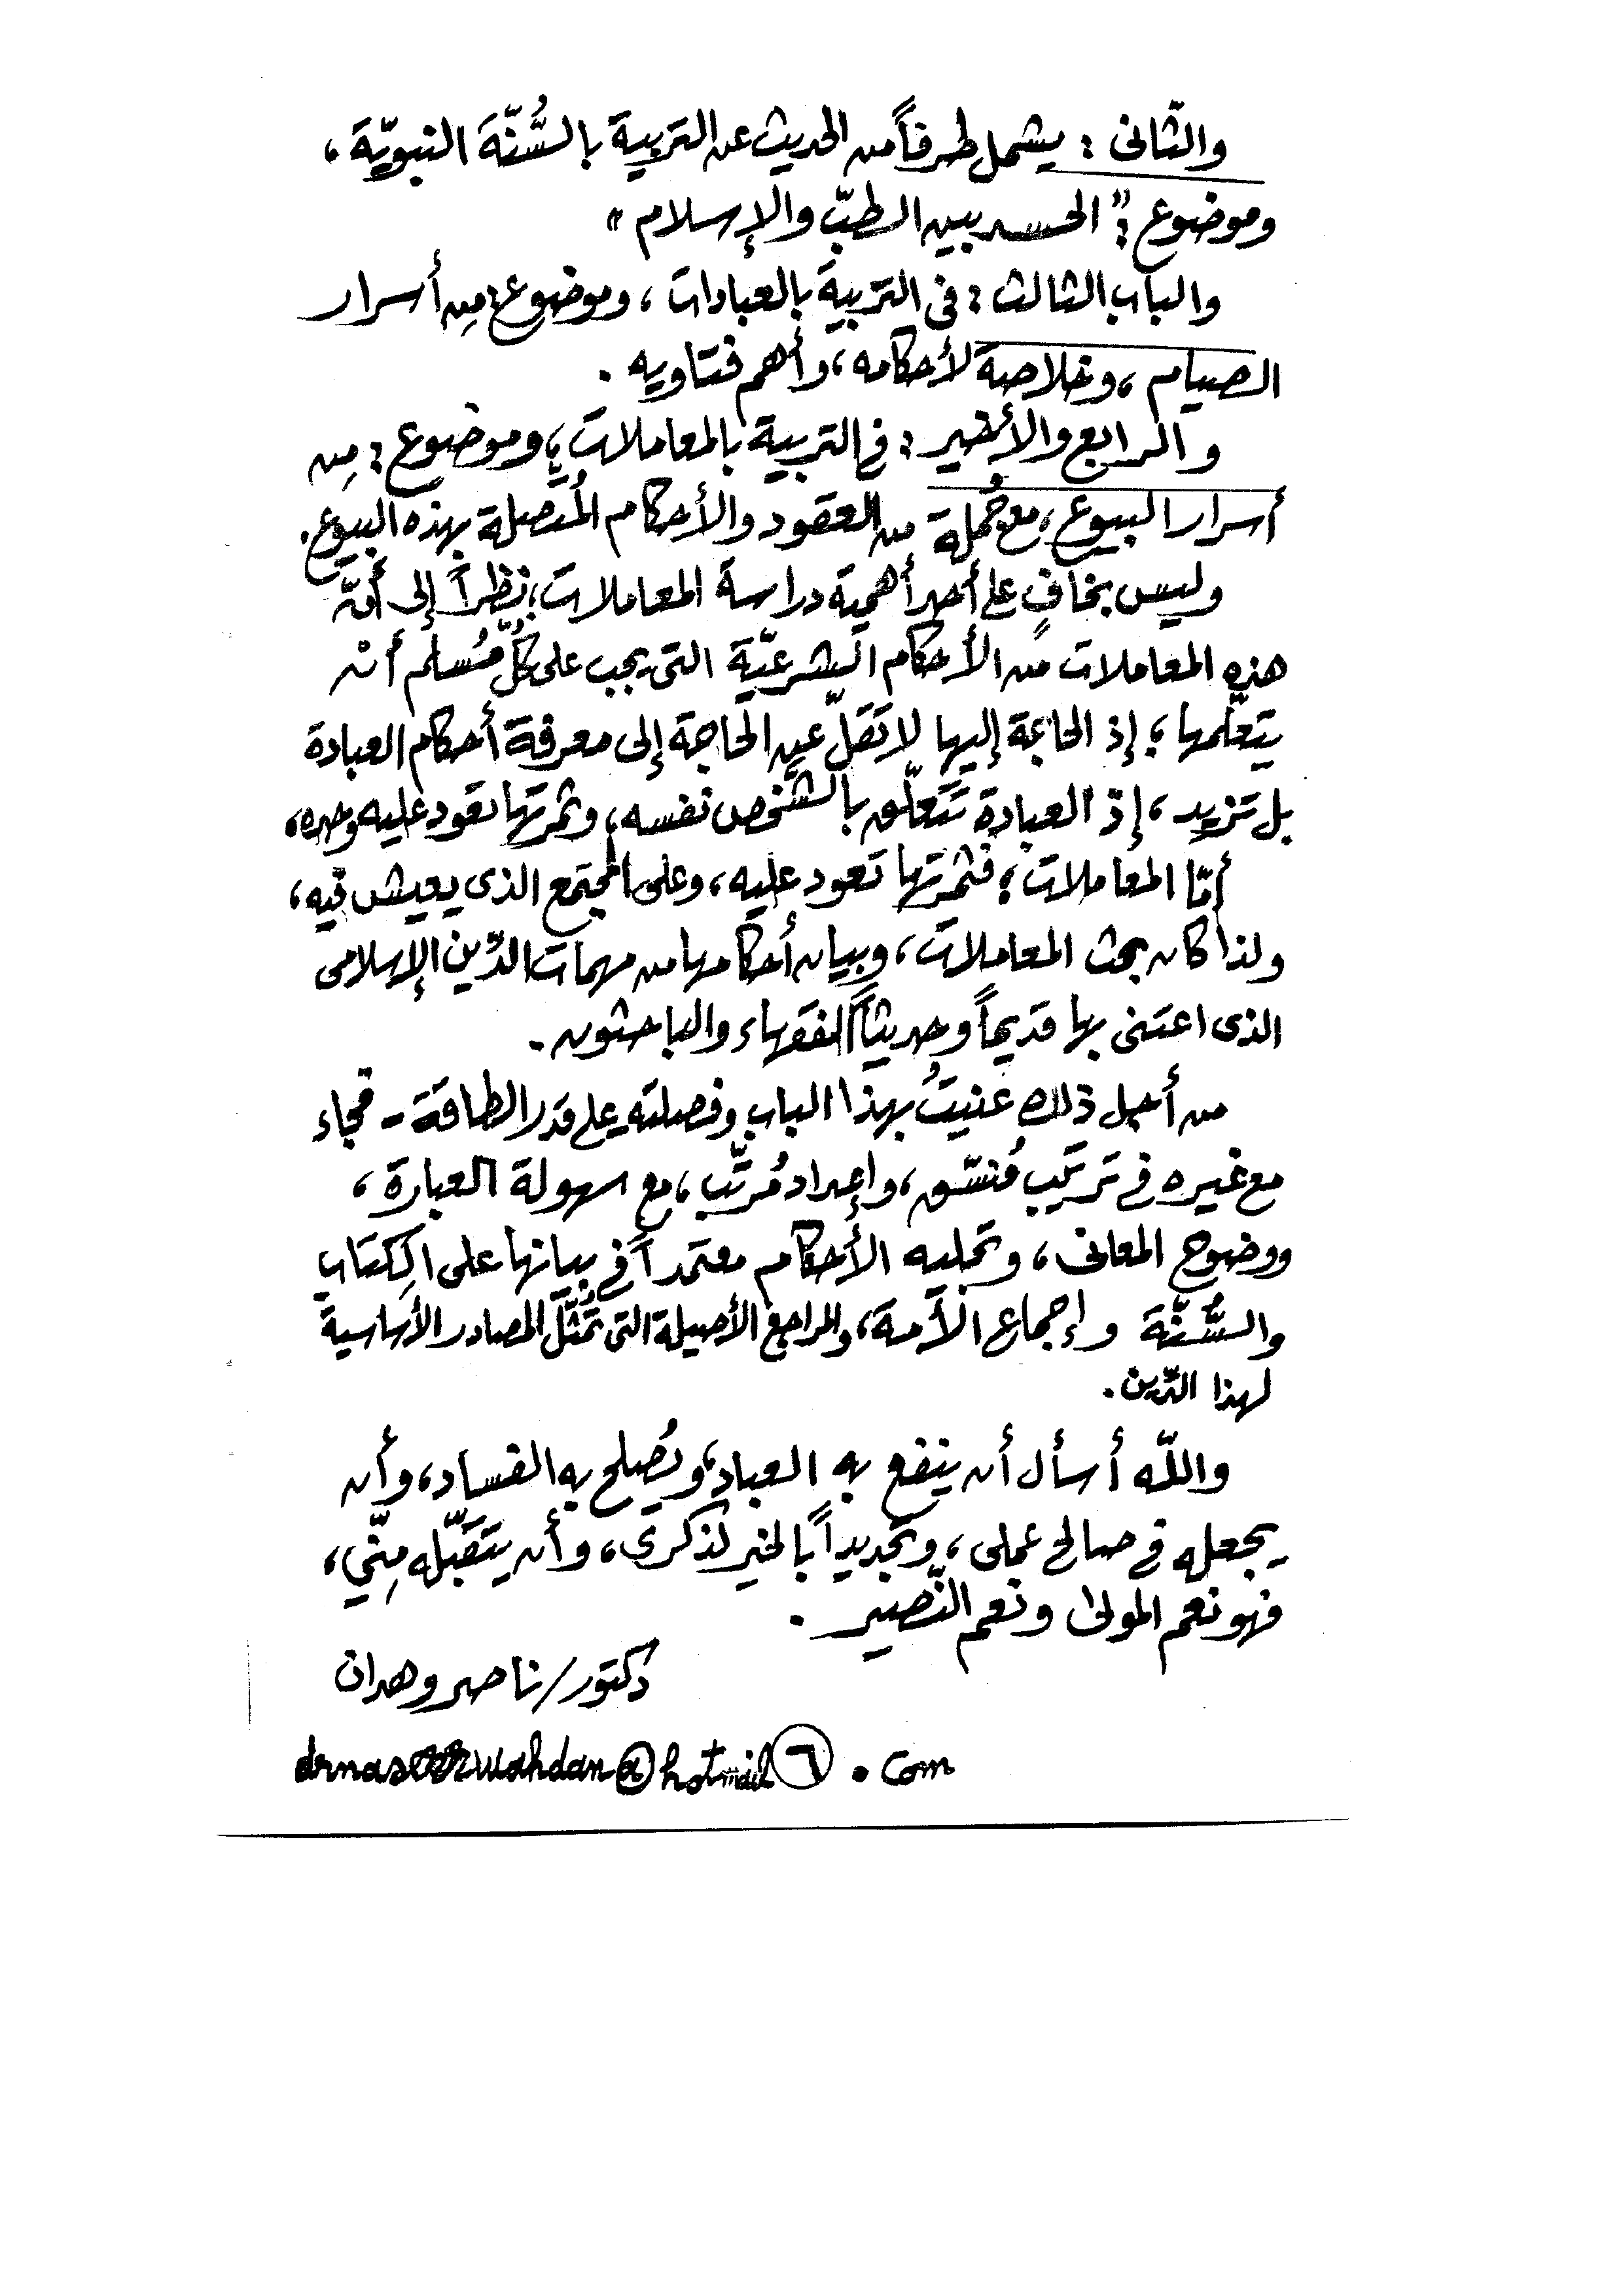 والثّانى : يشمل طرفاً من الحديث عن التربية بالسُّنّة النبويّة ،
وموضوع : " الحسد بين الطبّ والإسلام "
والباب الثالث : فى التربية بالعبادات ، وموضوع : مِن أسرار
الصيام ، وخلاصة لأحكامه ، وأهم فتاويه .
والرابع والأخير : فى التربية بالمعاملات ، وموضوع : مِن
أسرار البيوع ، مع جُملة من العقود والأحكام المُتصلة بهذه البيوع .
وليس بخافٍ على أحدٍ أهمية دراسة المعاملات ؛ نظراً إلى أنّ
هذه المعاملات من الأحكام الشرعيّة التى يجب على كُلّ مُسلم أن
يتعلّمها ؛ إذ الحاجة إليها لا تَقلّ عن الحاجة إلى معرفة أحكام العبادة
بل تزيد ، إذ العبادة تتعلّق بالشّخص نفسه ، وثمرتها تعود عليه وحده ،
أمّا المعاملات ؛ فثمرتها تعود عليه ، وعلى المجتمع الذى يعيش فيه ،
ولذا كان بحث المعاملات ، وبيان أحكامها من مهمات الدِّين الإسلامى
الذى اعتنى بها قديماً وحديثاً الفقهاء والباحثون .
من أجل ذلك عنيتُ بهذا الباب وفصلته على قدر الطاقة - فجاء
مع غيره فى تركيب مُنسّق ، وإعداد مُرتّب ، مع سهولة العبارة ،
ووضوح المعانى ، وتجليه الأحكام معتمداً فى بيانها على الكِتاب
والسُّنّة وإجماع الأمة ، والمراجع الأصيلة التى تُمثّل المصادر الأساسية
لهذا الدّين .
واللّه أسأل أن ينفع به العباد ، ويُصلح به الفساد ، وأن
يجعله فى صالح عملى ، وتجديداً بالخير لذكرى ، وأن يتقبّله مِنّي ،
فهو نعم المولى ونعم النّصير .
دكتور / ناصر وهدان
wahdan@hotmail ٦ . com